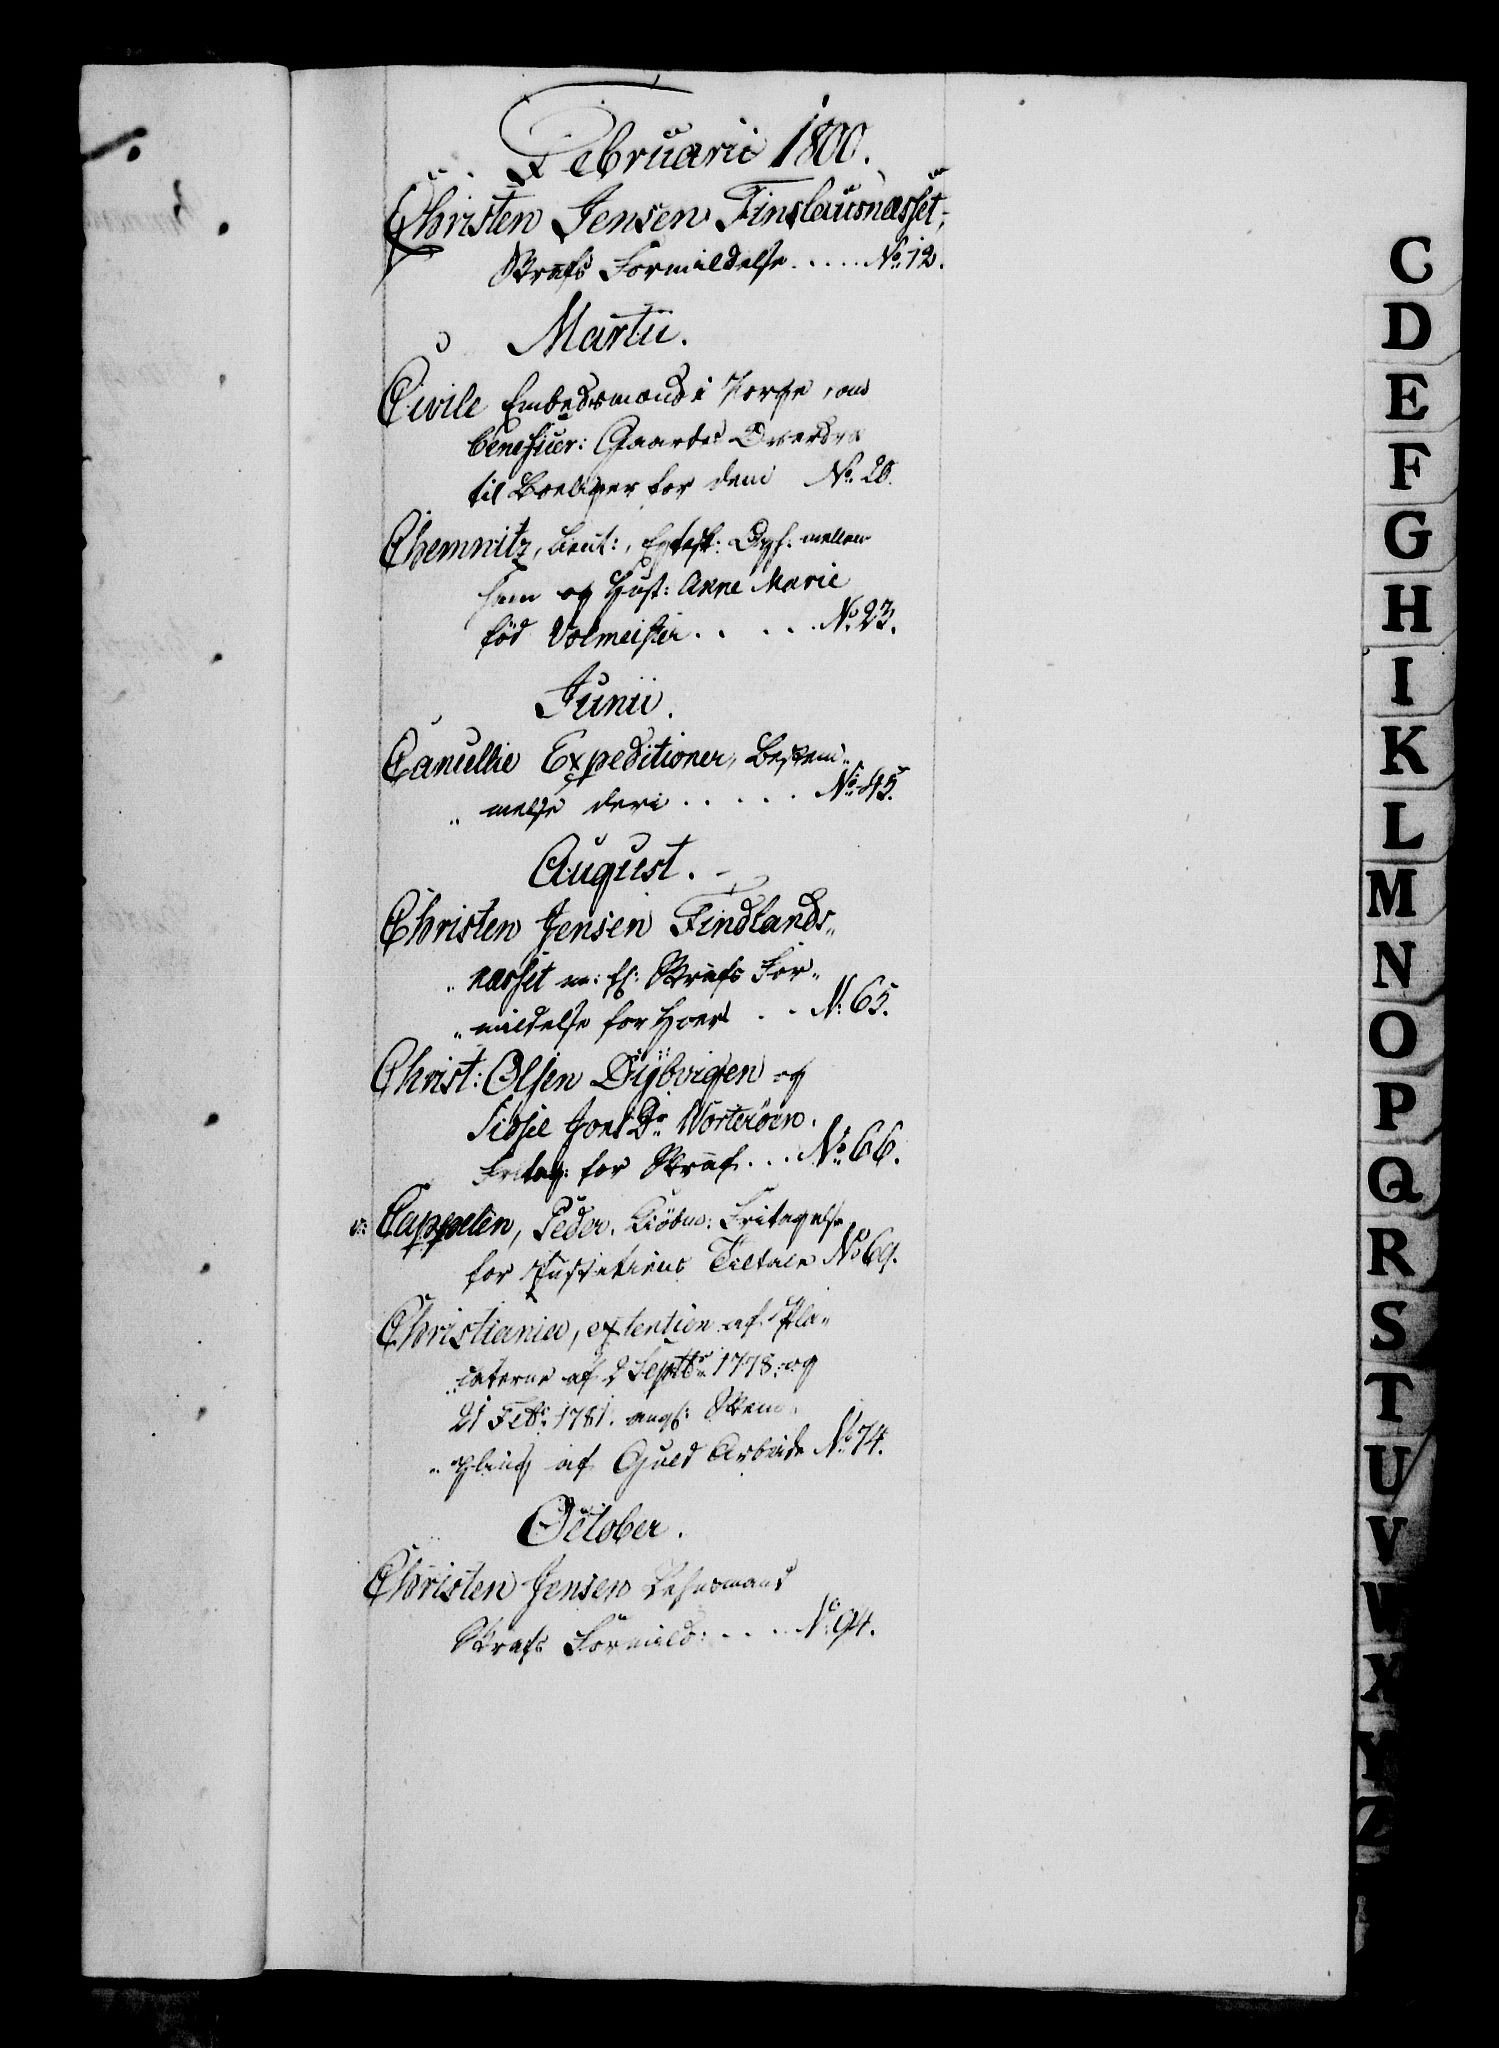 Februarii 1800.
Christen Jensen Finslausnæsset,
Strafs Formildelse..... No. 12.
Martii.
Civile Embedsmænd i Norge, om
beneficer: Gaardes
til Boeliger for dem No. 20.
Chemnitz, Lieut:, Ægtesk: Oph: mellem
ham og Hust: Anne Marie
föd Volmeister..... No. 23.
Junii.
Cancellie Expeditioner, Bestem„
„ melse deri..... No. 45.
August.
Christen Jensen Findlands„
„ næsset m: fl: Strafs For„
„ mildelse for Hoer.. N: 65.
Christ: Olsen Dybvigen og
Sidsel Jons Dr. Worteröen.
Fritag: for Straf... No. 66.
v: Cappelen, Peder, Kiöbm: Fritagelse
for Justitiens Tiltale No. 69.
Christiania, extention af Pla„
„caterne af 2 Septbr. 1778. og
21 Febr. 1781. angl: Stem„
„pling af Guld Arbeide No. 74.
October.
Christen Jensen Lehnsmand
Strafs Formild:.... No. 94.
C
D
E
F
G
H
I
K
L
M
N
O
P
Q
R
S
T
U
V
W
X
Y
Z